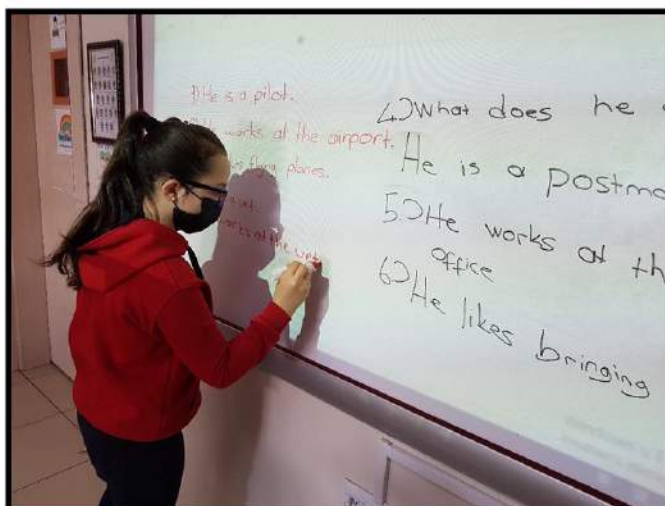 1) He is a pilot.
He works at the airport.
flying planes.
a vet.
works at the vet
4) What does he
He is a postma
5) He works at th
office
6) He likes bringing